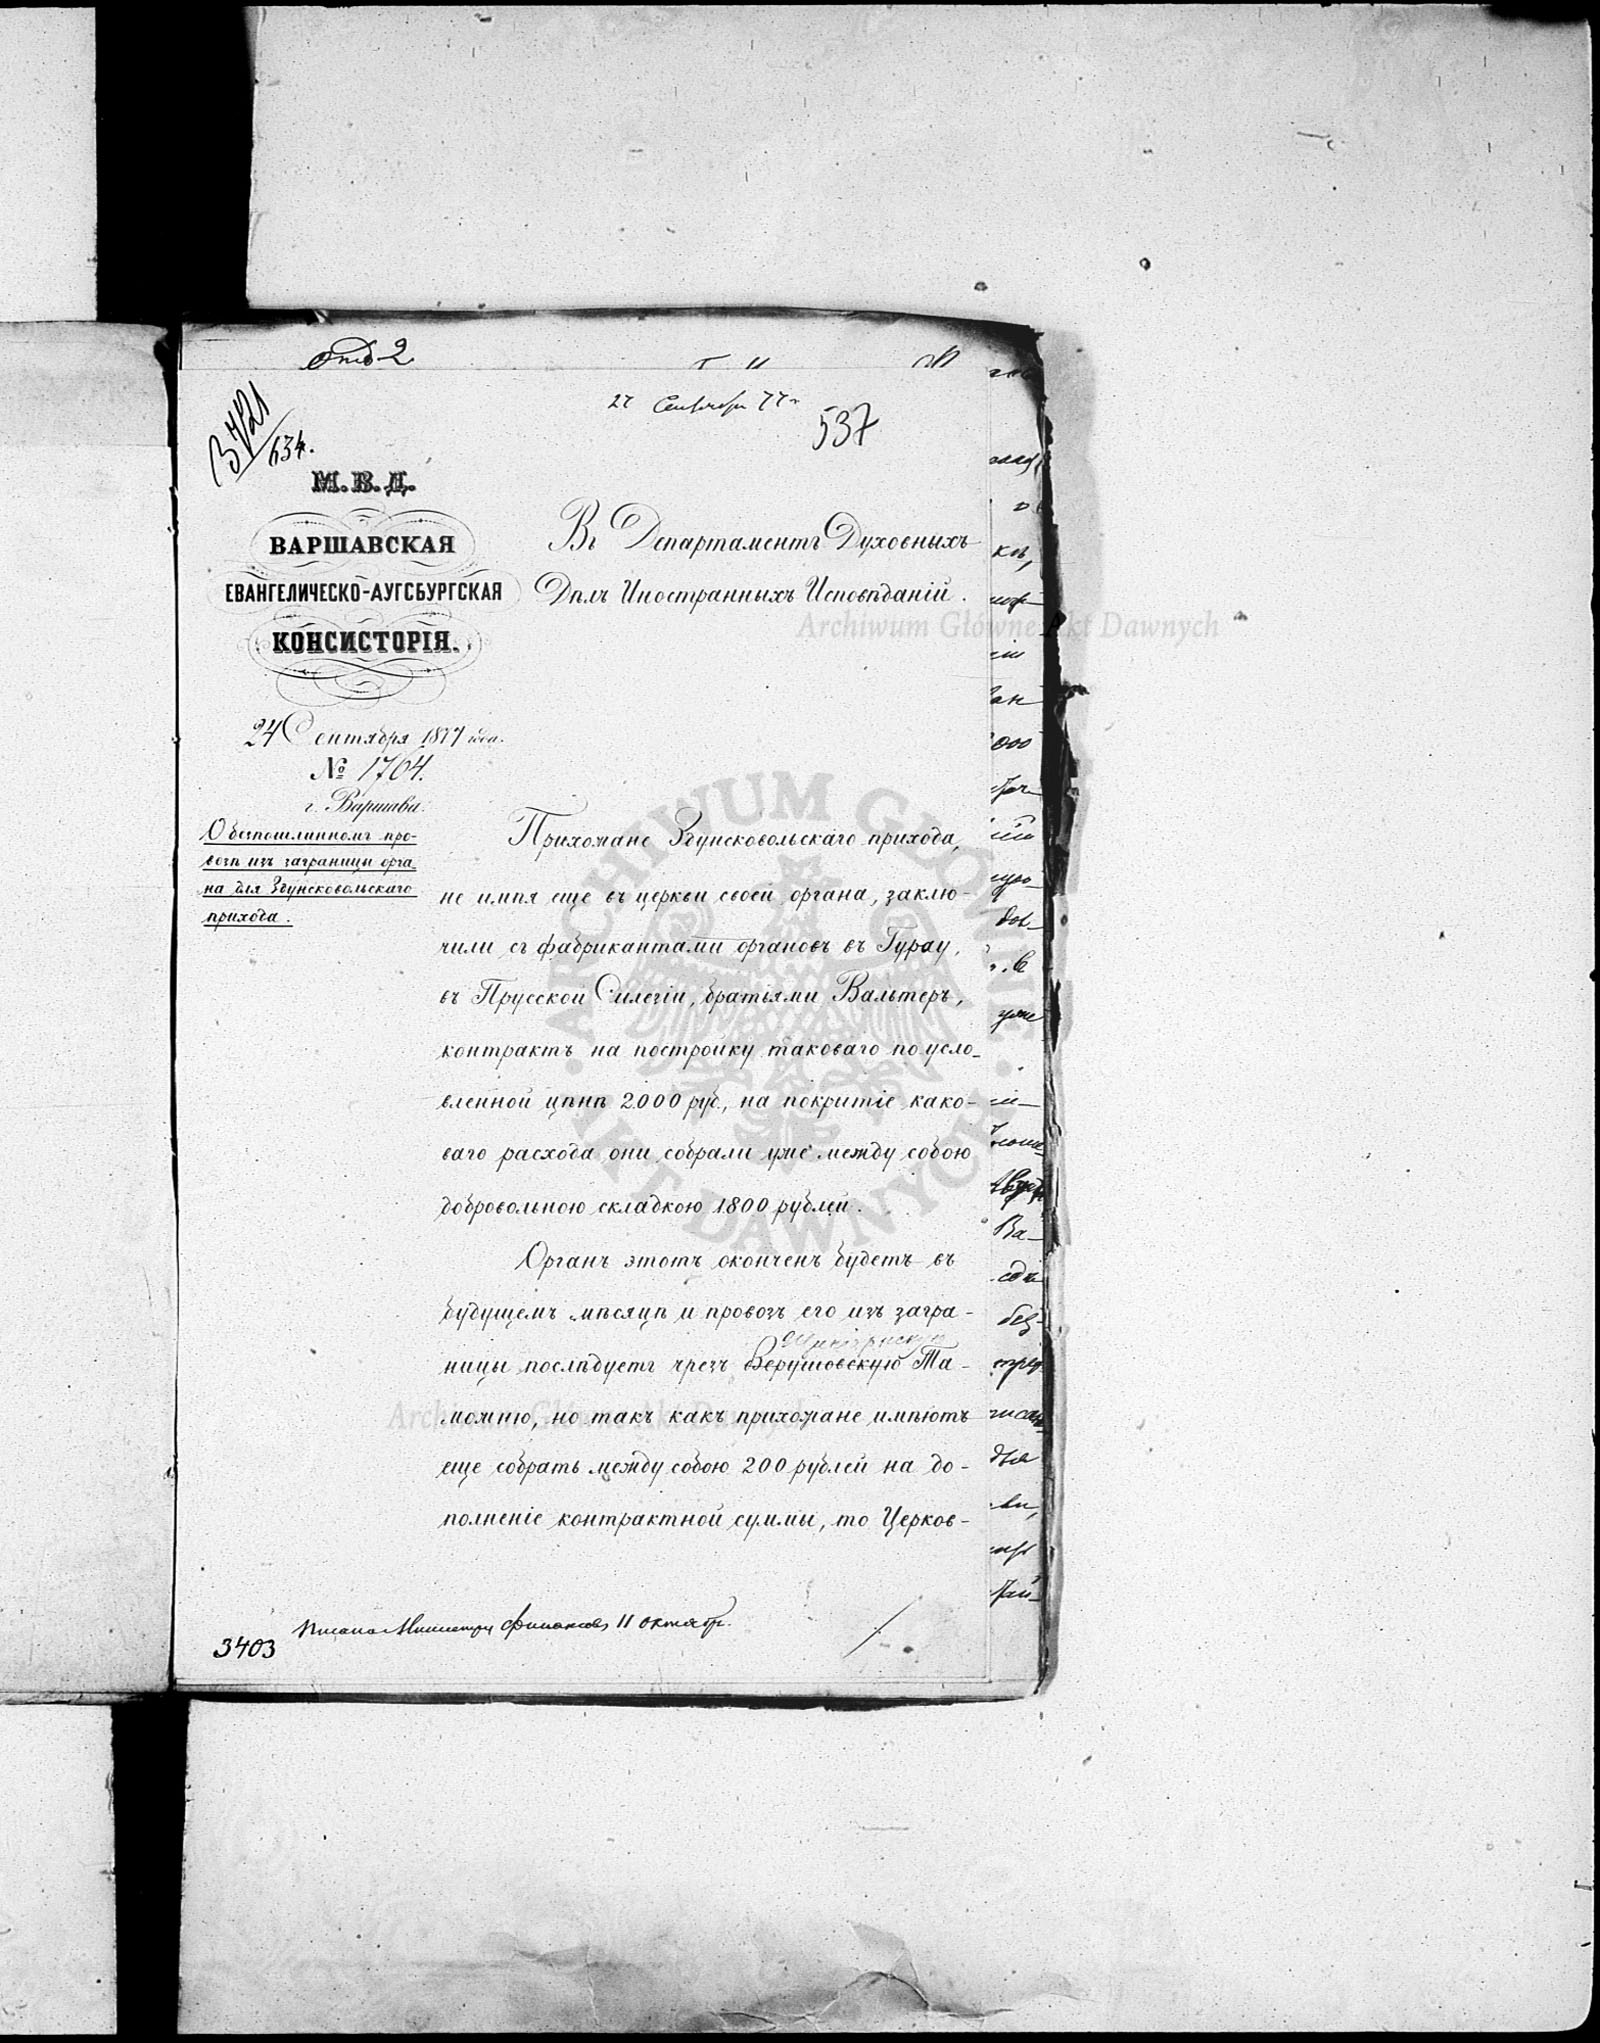 Отд 2
27 Сентября 77 г
537
3421/634.
М. В. Д.
ВАРШАВСКАЯ
ЕВАНГЕЛИЧЕСКО-АУГСБУРГСКАЯ
КОНСИСТОРІЯ.
24 Сентября 1877 года.
№ 1704.
г. Варшава.
О безпошлинномъ про-
возѣ изъ заграницы орга-
на для Здунсковольскаго
прихода.
Въ Департаментъ Духовныхъ
Дѣлъ Иностранныхъ Исповѣданій.
Archiwum Główne Akt Dawnych
Прихожане Здунсковольскаго прихода,
не имѣя еще въ церкви своей органа, заклю-
чили съ фабрикантами органовъ въ Гурау,
въ Прусской Силезіи, братьями Вальтеръ,
контрактъ на постройку таковаго по усло-
вленной цѣнѣ 2000 руб., на покрытіе како-
ваго расхода они собрали уже между собою
добровольною складкою 1800 рублей.
Органъ этотъ оконченъ будетъ въ
будущемъ мѣсяцѣ и провозъ его изъ загра-
ницы послѣдуетъ чрезъ Верушовскую Та-
можню, но такъ какъ прихожане имѣютъ
еще собрать между собою 200 рублей на до-
полненіе контрактной суммы, то Церков-
ARCHIWUM GŁÓWNE AKT DAWNYCH
Archiwum Główne Akt Dawnych
Писано Министру Финансовъ 11 октября.
3403